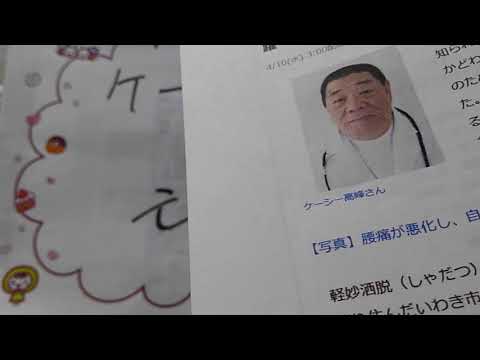 ケー
え
4/10(水) 3:00
知られ
かどわ
のため
た。
る
ケーシー高峰さん
【写真】腰痛が悪化し、自
軽妙洒脱（しゃだつ）
住んだいわき市